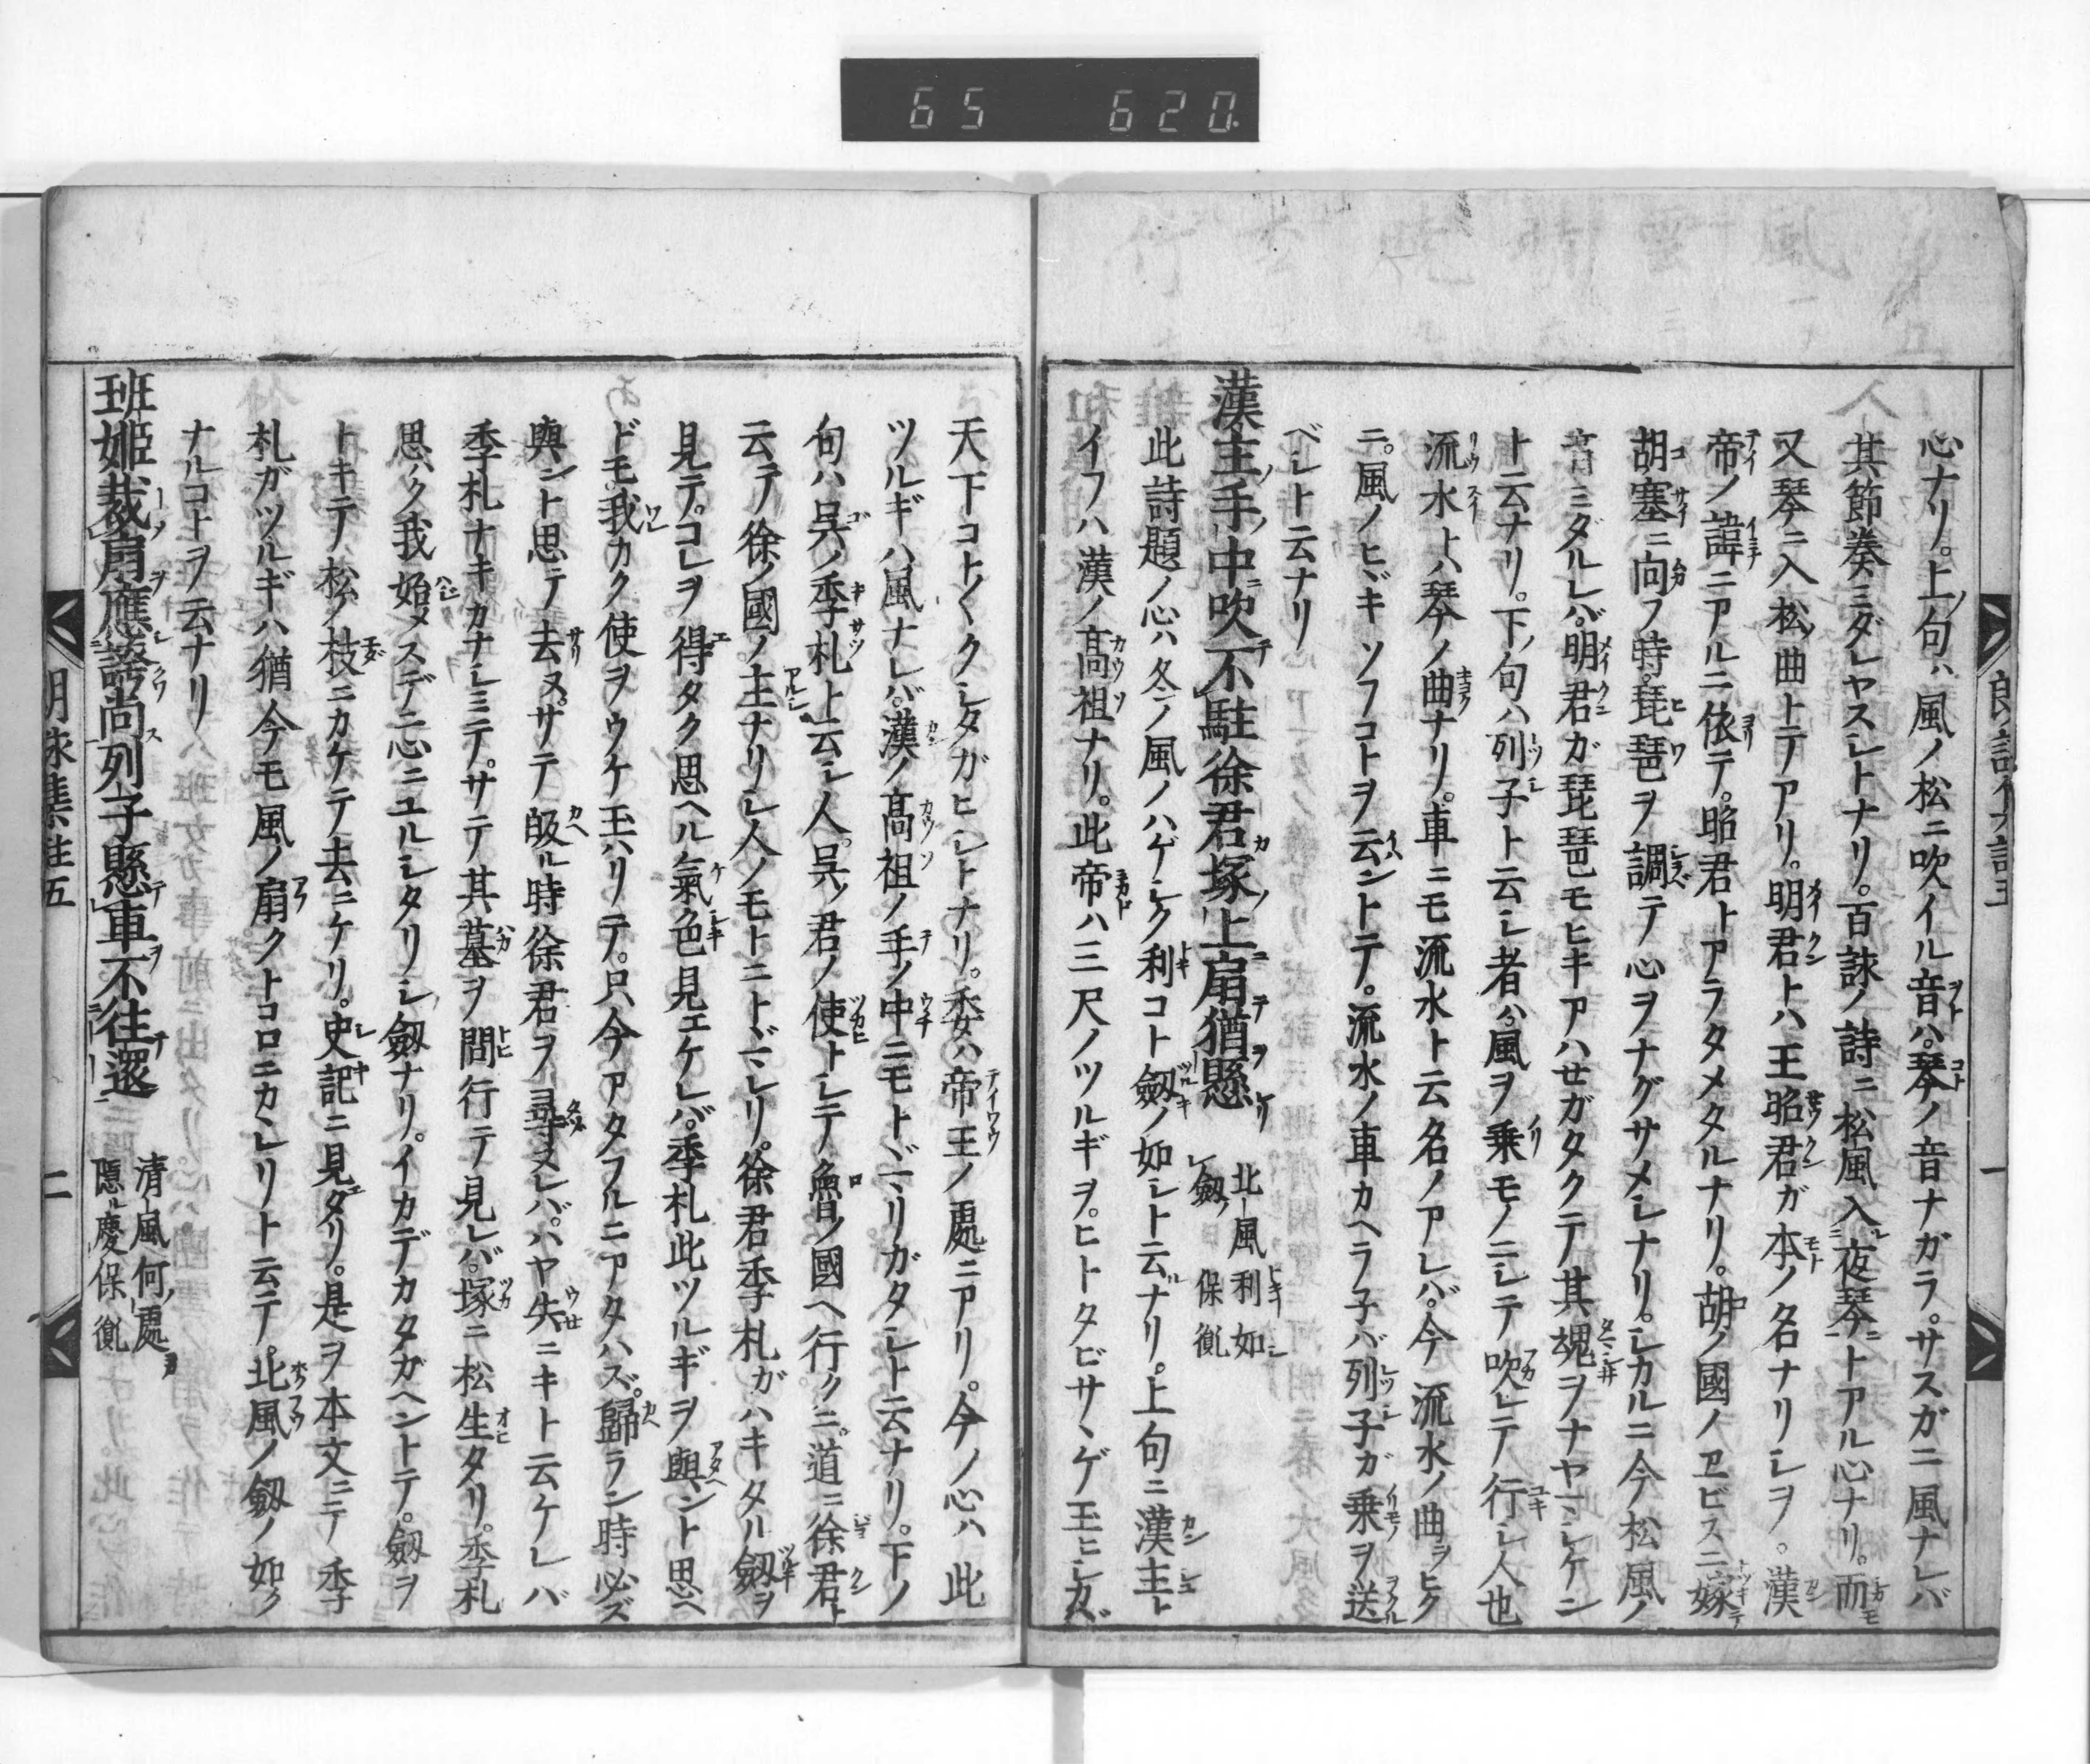 65 620
心ナリ。上ノ句ハ風ノ松ニ吹イル音ハ。琴ノ音ナガラ。サスガニ風ナレバ
其節奏ミダレヤスレトナリ。百詠ノ詩ニ松風入夜琴トアル心ナリ。而
又琴ニ入松ノ曲トテアリ。明君トハ王昭君ガ本ノ名ナリシヲ。漢
帝ノ諱ニアルニ依テ。昭君トアラタメタルナリ。胡ノ國ノヱビスニ嫁
胡塞ニ向フ時。琵琶ヲ調テ心ヲナグサメシナリ。シカルニ今松風ノ
音ミダルレバ。明君ガ琵琶モヒキアハセガタクテ其魂ヲナヤマシケン
ト云ナリ。下ノ句ハ列子ト云シ者ハ。風ヲ乗モノニシテ吹レテ行シ人也
流水トハ琴ノ曲ナリ。車ニモ流水ト云名ノアレバ。今流水ノ曲ヲヒク
ニ。風ノヒヾキソフコトヲ云ントテ。流水ノ車カヘラ子バ列子ガ乗ヲ送
ベシト云ナリ
漢主手中吹不駐徐君塚上扇猶懸 北風利如劔 保胤
此詩題ノ心ハ冬ノ風ノハゲシク利コト劔ノ如シト云ナリ。上句ニ漢主ト
イフハ漢ノ高祖ナリ。此帝ハ三尺ノツルギヲ。ヒトタビサヽゲ玉ヒシカバ
天下コト〴〵クシタガヒシトナリ。委ハ帝王ノ處ニアリ。今ノ心ハ此
ツルギハ風ナレバ。漢ノ高祖ノ手ノ中ニモトヾマリガタシト云ナリ。下ノ
句ハ呉ノ季札ト云シ人。呉ノ君ノ使トシテ魯ノ國ヘ行クニ。道ニ徐君ト
云テ徐ノ國ノ主ナリシ人ノモトニトヾマレリ。徐君季札ガハキタル劔ヲ
見テ。コレヲ得タク思ヘル氣色見エケレバ。季札此ツルギヲ與ント思ヘ
ドモ。我カク使ヲウケ玉ハリテ。只今アタフルニアタハズ。歸ラン時必ズ
與ント思テ去ヌ。サテ皈ル時徐君ヲ尋ヌレバ。ハヤ失ニキト云ケレバ
季札ナキカナシミテ。サテ其墓ヲ問行テ見レバ。塚ニ松生タリ。季札
思ハク我始メスデニ心ニユルシタリシ劔ナリ。イカデカタガヘントテ。劔ヲ
トキテ松ノ枝ニカケテ去ニケリ。史記ニ見タリ。是ヲ本文ニテ季
札ガツルギハ猶今モ風ノ扇クトコロニカヽレリト云テ。北風ノ劔ノ如ク
ナルコトヲ云ナリ
班姫裁扇應誇尚列子懸車不往還 清風何處隱 慶保胤
朗詠集註五 二